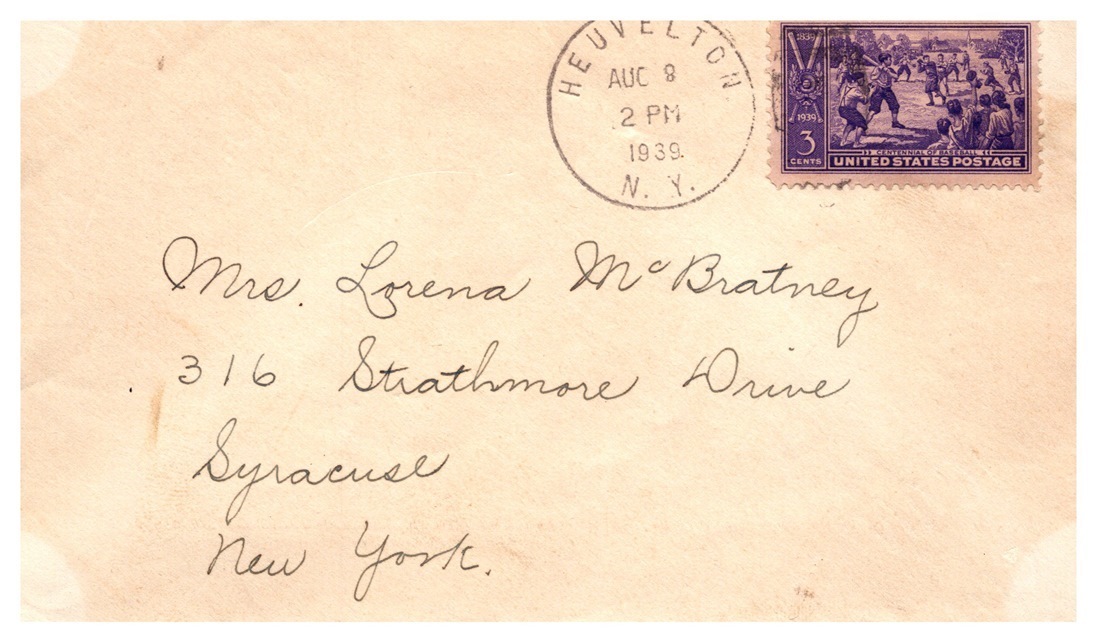 HEUVELTON
AUG 8
2 PM
1939
N. Y.
1839
1939
3
CENTS
CENTENNIAL OF BASEBALL
UNITED STATES POSTAGE
Mrs. Lorena McBratney
316 Strathmore Drive
Syracuse
New York.